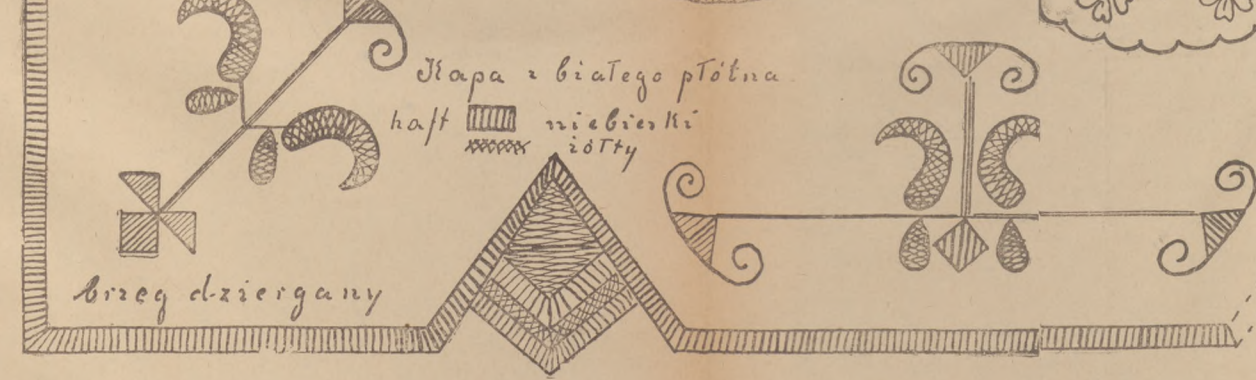 Kapa z białego płótna
haft niebieski
żółty
brzeg dziergany